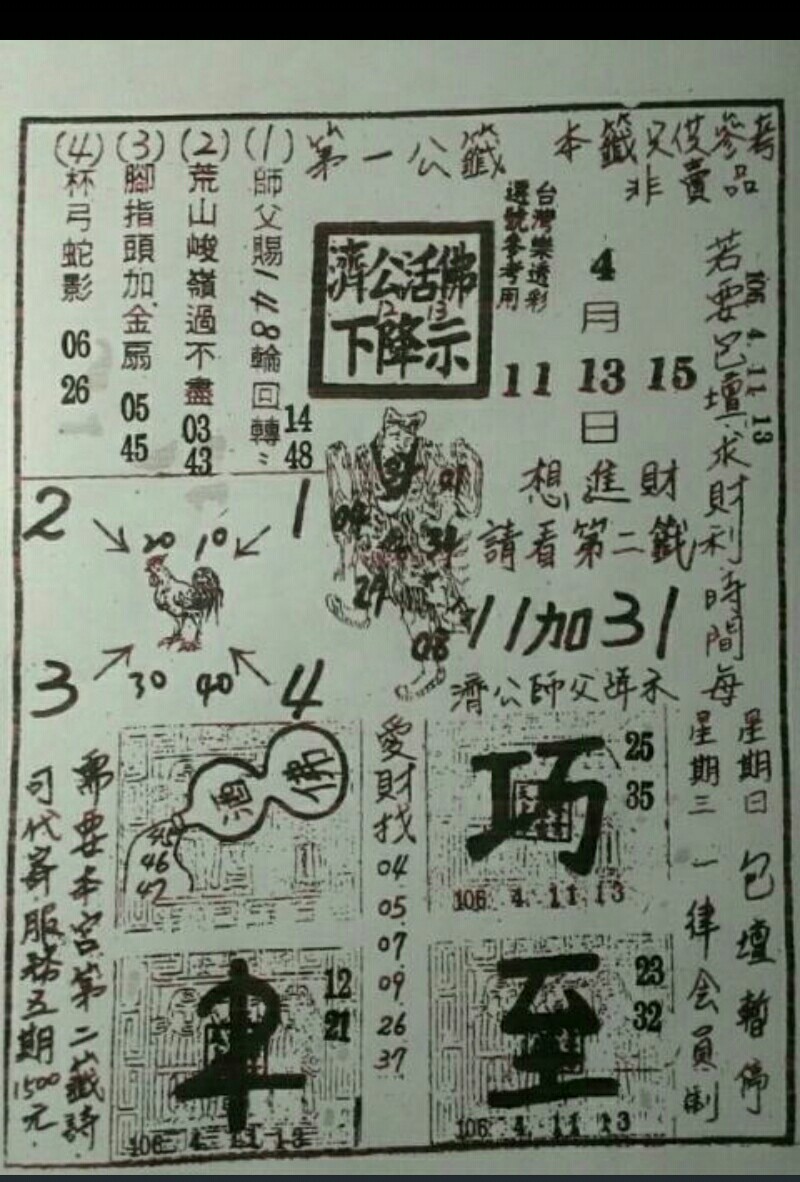 本籤只供參考
非賣品
第一公籤
(1)師父賜一六8輪回轉
14
48
(2)荒山峻嶺過不盡
03
43
(3)腳指頭加金扇
05
45
(4)杯弓蛇影
06
26
台灣樂透彩
選號參考用
濟公活佛
12 13
下降示
4
月
11 13 15
日
106 4. 11 13
若要包壇求財利時間每
星期日
星期三
包壇暫停
一律會員制
想進財
請看第二籤
11加31
濟公師父降示
2
1
20 10
30 40
3
4
04
34
29
08
佛
酒
45
46
47
愛財找
04
05
07
09
26
37
巧
25
35
106 4. 11 13
12
21
106 4. 11 13
至
23
32
106 4. 11 13
需要本宮第二籤詩
可代寄服務五期1500元